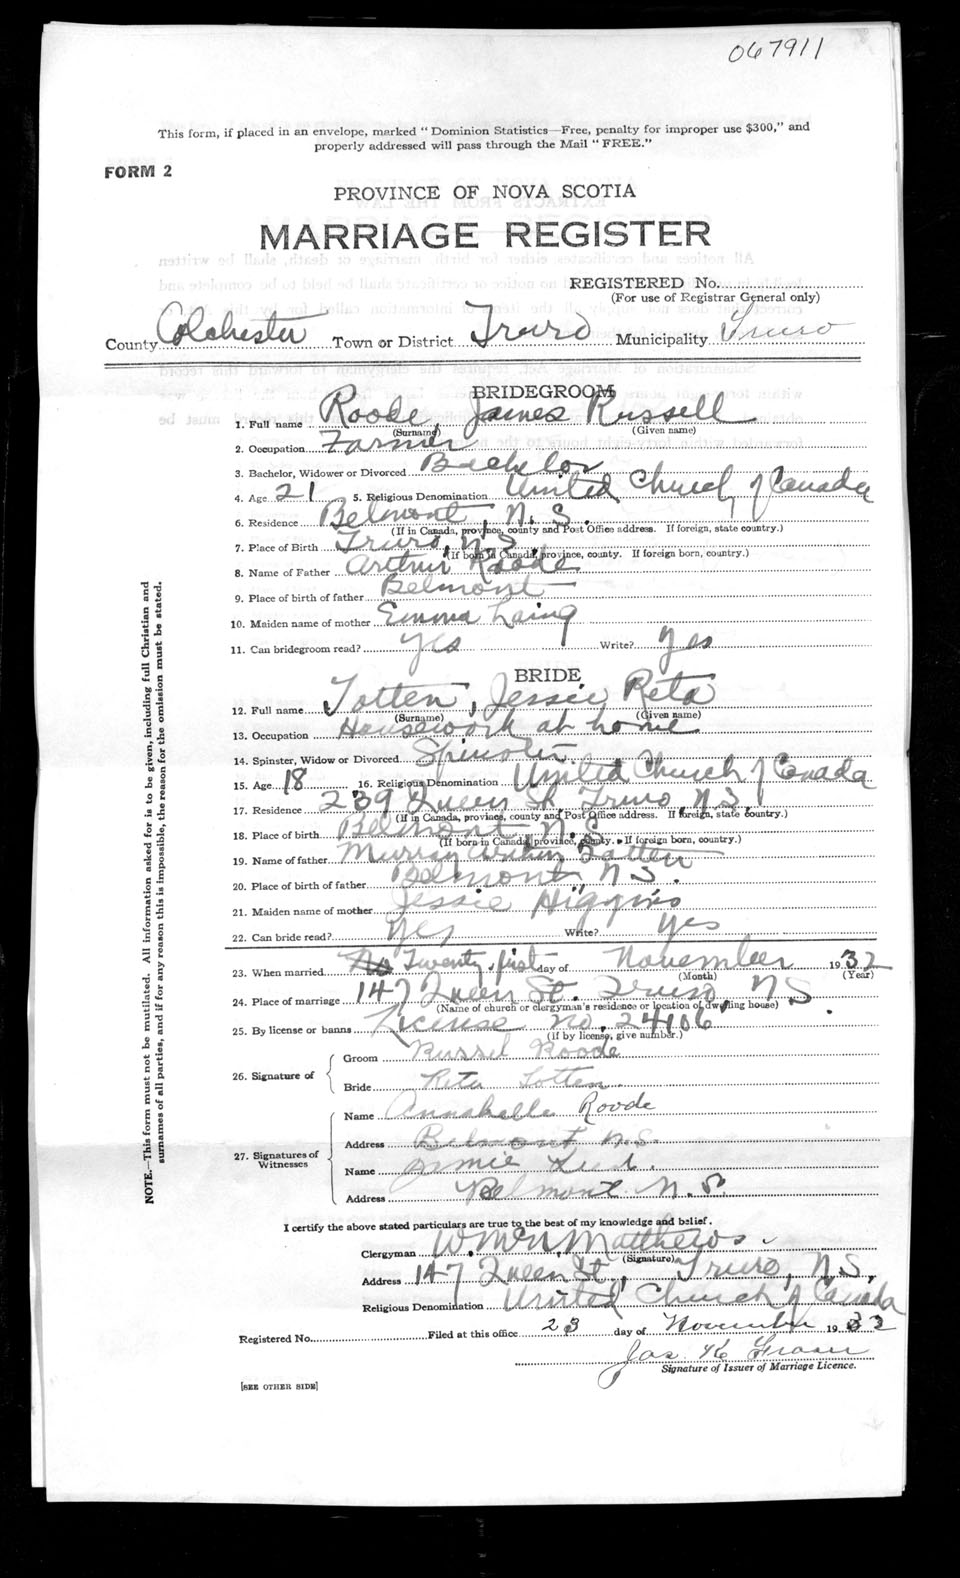 067911
This form, if placed in an envelope, marked "Dominion Statistics—Free, penalty for improper use $300," and
properly addressed will pass through the Mail "FREE."
FORM 2
PROVINCE OF NOVA SCOTIA
MARRIAGE REGISTER
REGISTERED No.
(For use of Registrar General only)
County Colchester Town or District Truro Municipality Truro
BRIDEGROOM
1. Full name Roode, James Russell
(Surname) (Given name)
2. Occupation Farmer
3. Bachelor, Widower or Divorced Bachelor
4. Age 21 5. Religious Denomination United Church of Canada
6. Residence Belmont, N.S.
(If in Canada, province, county and Post Office address. If foreign, state country.)
7. Place of Birth Truro, N.S.
(If born in Canada, province, county. If foreign born, country.)
8. Name of Father Arthur Roode
9. Place of birth of father Belmont
10. Maiden name of mother Emma Laing
11. Can bridegroom read? yes Write? yes
BRIDE
12. Full name Totten, Jessie Reta
(Surname) (Given name)
13. Occupation Housework at home
14. Spinster, Widow or Divorced Spinster
15. Age 18 16. Religious Denomination United Church of Canada
17. Residence 239 Queen St. Truro, N.S.
(If in Canada, province, county and Post Office address. If foreign, state country.)
18. Place of birth Belmont, N.S.
(If born in Canada, province, county. If foreign born, country.)
19. Name of father Murray Totten
20. Place of father of birth Belmont N.S.
21. Maiden name of mother Jessie Higgins
22. Can bride read? Yes Write? Yes
23. When married Twenty first day of November 1932
(Month) (Year)
24. Place of marriage 147 Queen St. Truro, N.S.
(Name of church or clergyman's residence or location of dwelling house)
25. By license or banns License no. 24106
(If by license, give number.)
26. Signature of
Groom Russel Roode
Bride Reta Totten
27. Signatures of Witnesses
Name Annabelle Roode
Address Belmont N.S.
Name
Address Belmont N.S.
I certify the above stated particulars are true to the best of my knowledge and belief.
Clergyman Matthews
(Signature)
Address 147 Queen St, Truro, N.S.
Religious Denomination United Church of Canada
Registered No. Filed at this office 23 day of November 1932
Jas. Fraser
Signature of Issuer of Marriage Licence.
[SEE OTHER SIDE]
NOTE.—This form must not be mutilated. All information asked for is to be given, including full Christian and
surnames of all parties, and if for any reason this is impossible, the reason for the omission must be stated.